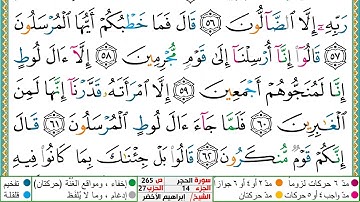 رَبِّهِۦٓ إِلَّا ٱلضَّآلُّونَ ٥٦ قَالَ فَمَا خَطْبُكُمْ أَيُّهَا ٱلْمُرْسَلُونَ
٥٧ قَالُوٓا۟ إِنَّآ أُرْسِلْنَآ إِلَىٰ قَوْمٍ مُّجْرِمِينَ ٥٨ إِلَّآ ءَالَ لُوطٍ
إِنَّا لَمُنَجُّوهُمْ أَجْمَعِينَ ٥٩ إِلَّا ٱمْرَأَتَهُۥ قَدَّرْنَآ إِنَّهَا لَمِنَ
ٱلْغَٰبِرِينَ ٦٠ فَلَمَّا جَآءَ ءَالَ لُوطٍ ٱلْمُرْسَلُونَ ٦١ قَالَ
إِنَّكُمْ قَوْمٌ مُّنكَرُونَ ٦٢ قَالُوا۟ بَلْ جِئْنَٰكَ بِمَا كَانُوا۟ فِيهِ
مدّ ٦ حركات لزوماً مدّ ٢ أو ٤ أو ٦ جوازاً سورة الحجر ص 265 إخفاء ، ومواقع الغُنَّة (حركتان) تفخيم
مدّ واجب ٤ أو ٥ حركات مدّ حركتان الجزء 14 الحزب 27 إدغام ، وما لا يُلفَظ قلقلة
الشيخ/ إبراهيم الأخضر